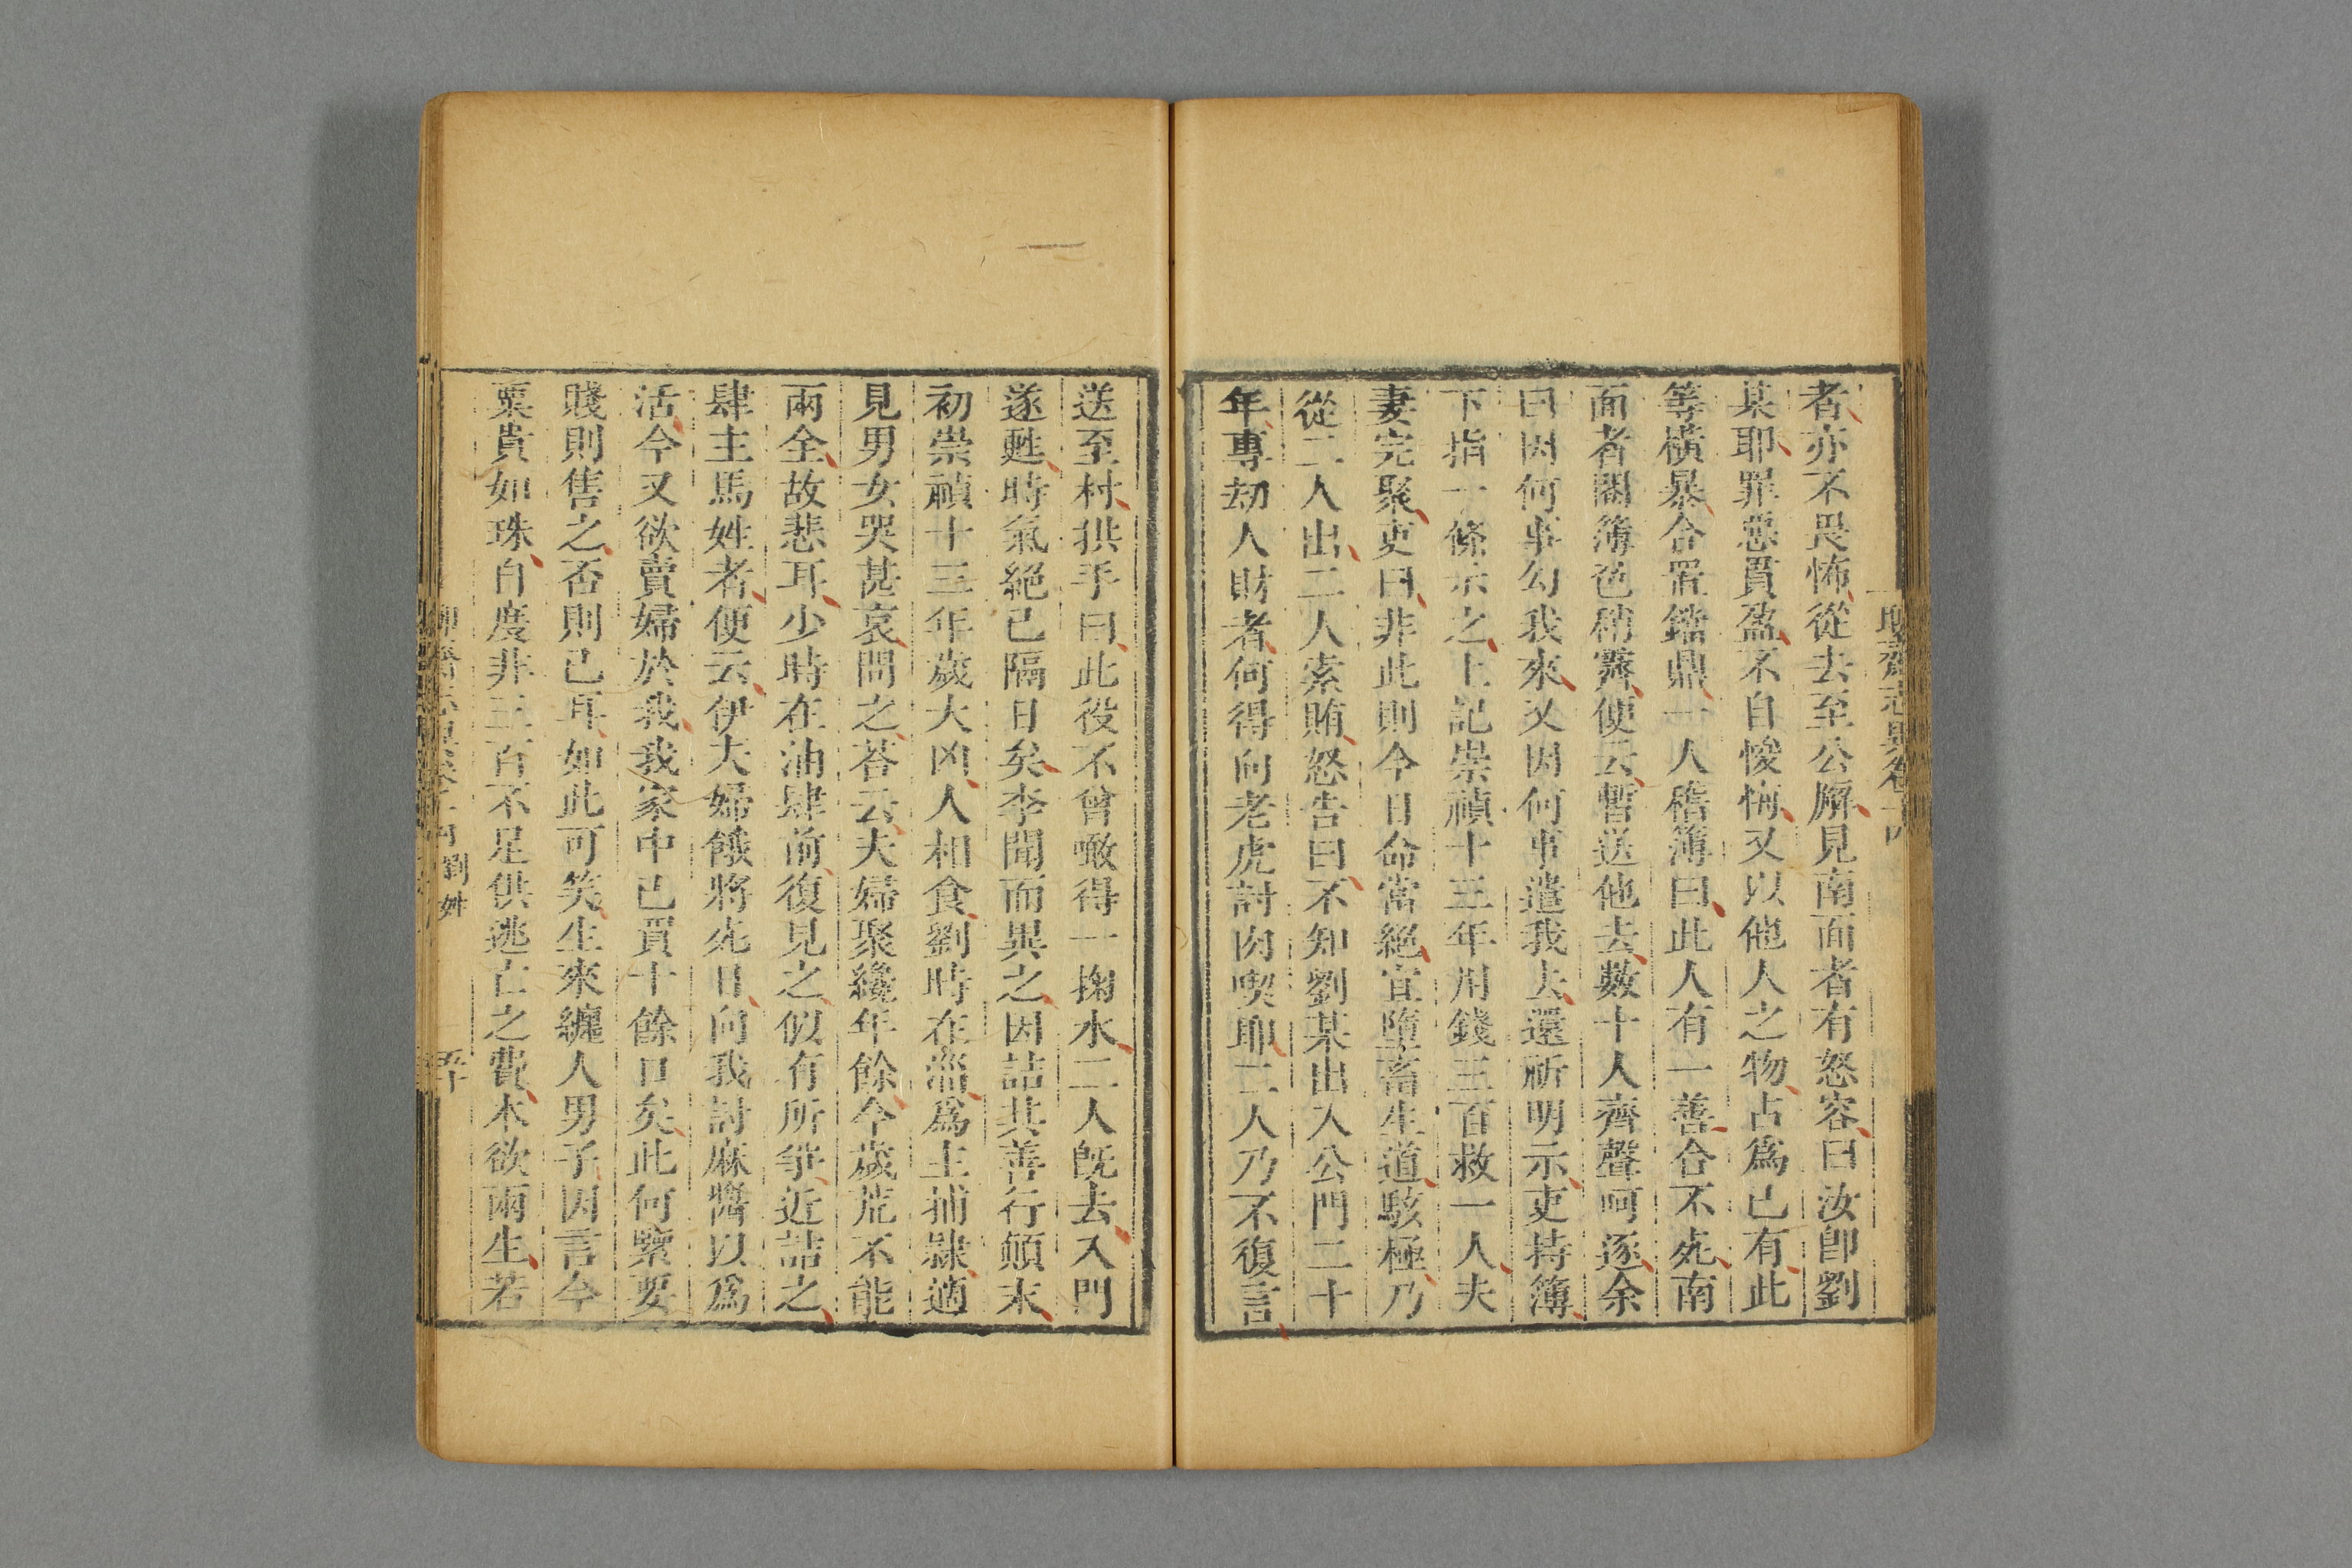 者亦不畏怖從去至公廨見南面者有怒容曰汝卽劉
某耶罪惡貫盈不自悛悔又以他人之物占爲己有此
等橫暴合置鐺鼎一人稽簿曰此人有一善合不死南
面者閱簿色稍霽便云暫送他去數十人齊聲呵逐余
曰因何事勾我來又因何事遣我去還祈明示吏持簿
下指一條示之上記崇禎十三年用錢三百救一人夫
妻完聚吏曰非此則今日命當絕宜墮畜生道駭極乃
從二人出二人索賄怒告曰不知劉某出入公門二十
年專刧人財者何得向老虎討肉喫耶二人乃不復言
送至村拱手曰此役不曾噉得一掬水二人旣去入門
遂甦時氣絕已隔日矣李聞而異之因詰其善行顚末
初崇禎十三年歲大凶人相食劉時在淄爲主捕隸適
見男女哭甚哀問之荅云夫婦聚纔年餘今歲荒不能
兩全故悲耳少時在油肆前復見之似有所爭近詰之
肆主馬姓者便云伊夫婦餓將死日向我討麻醬以爲
活今又欲賣婦於我我家中已買十餘口矣此何緊要
賤則售之否則已耳如此可笑生來纏人男子因言今
粟貴如珠自度非三百不足供逃亡之費本欲兩生若
劉姓